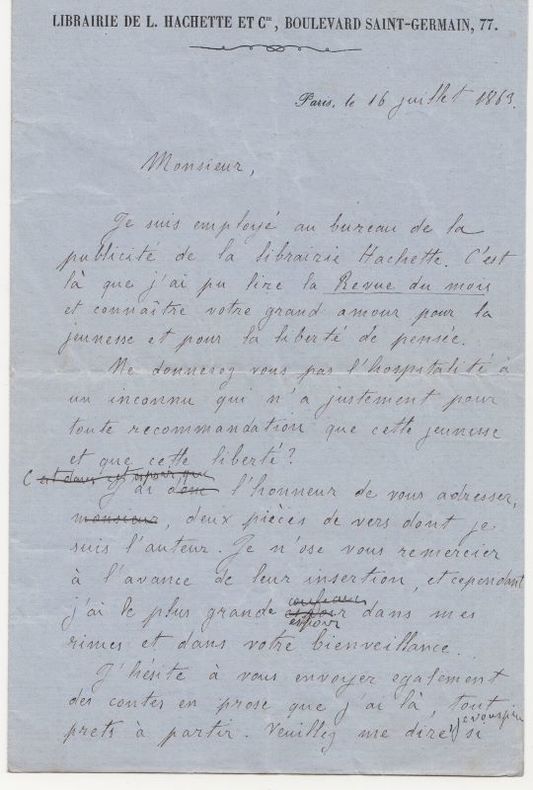 LIBRAIRIE DE L. HACHETTE ET Cie, BOULEVARD SAINT-GERMAIN, 77.
Paris, le 16 juillet 1863.
Monsieur,
Je suis employé au bureau de la
publicité de la librairie Hachette. C'est
là que j'ai pu lire la Revue du mois
et connaître votre grand amour pour la
jeunesse et pour la liberté de pensée.
Ne donnerez vous pas l'hospitalité à
un inconnu qui n'a justement pour
toute recommandation que cette jeunesse
et que cette liberté?
C'est dans cet espoir que
j'ai donc l'honneur de vous adresser,
monsieur, deux pièces de vers dont je
suis l'auteur. Je n'ose vous remercier
à l'avance de leur insertion, et cependant
j'ai le plus grande espoir dans mes
espoir
rimes et dans votre bienveillance.
J'hésite à vous envoyer egalement
des contes en prose que j'ai là, tout
prets à partir. Veuillez me dire, je vous prie si